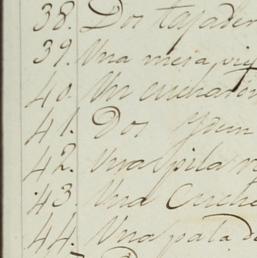 38. Dos tajader
39. Una mesa vie
40. Un cucharon
41. Dos
42. Una pila
43. Una Cuch
44. Una pata de